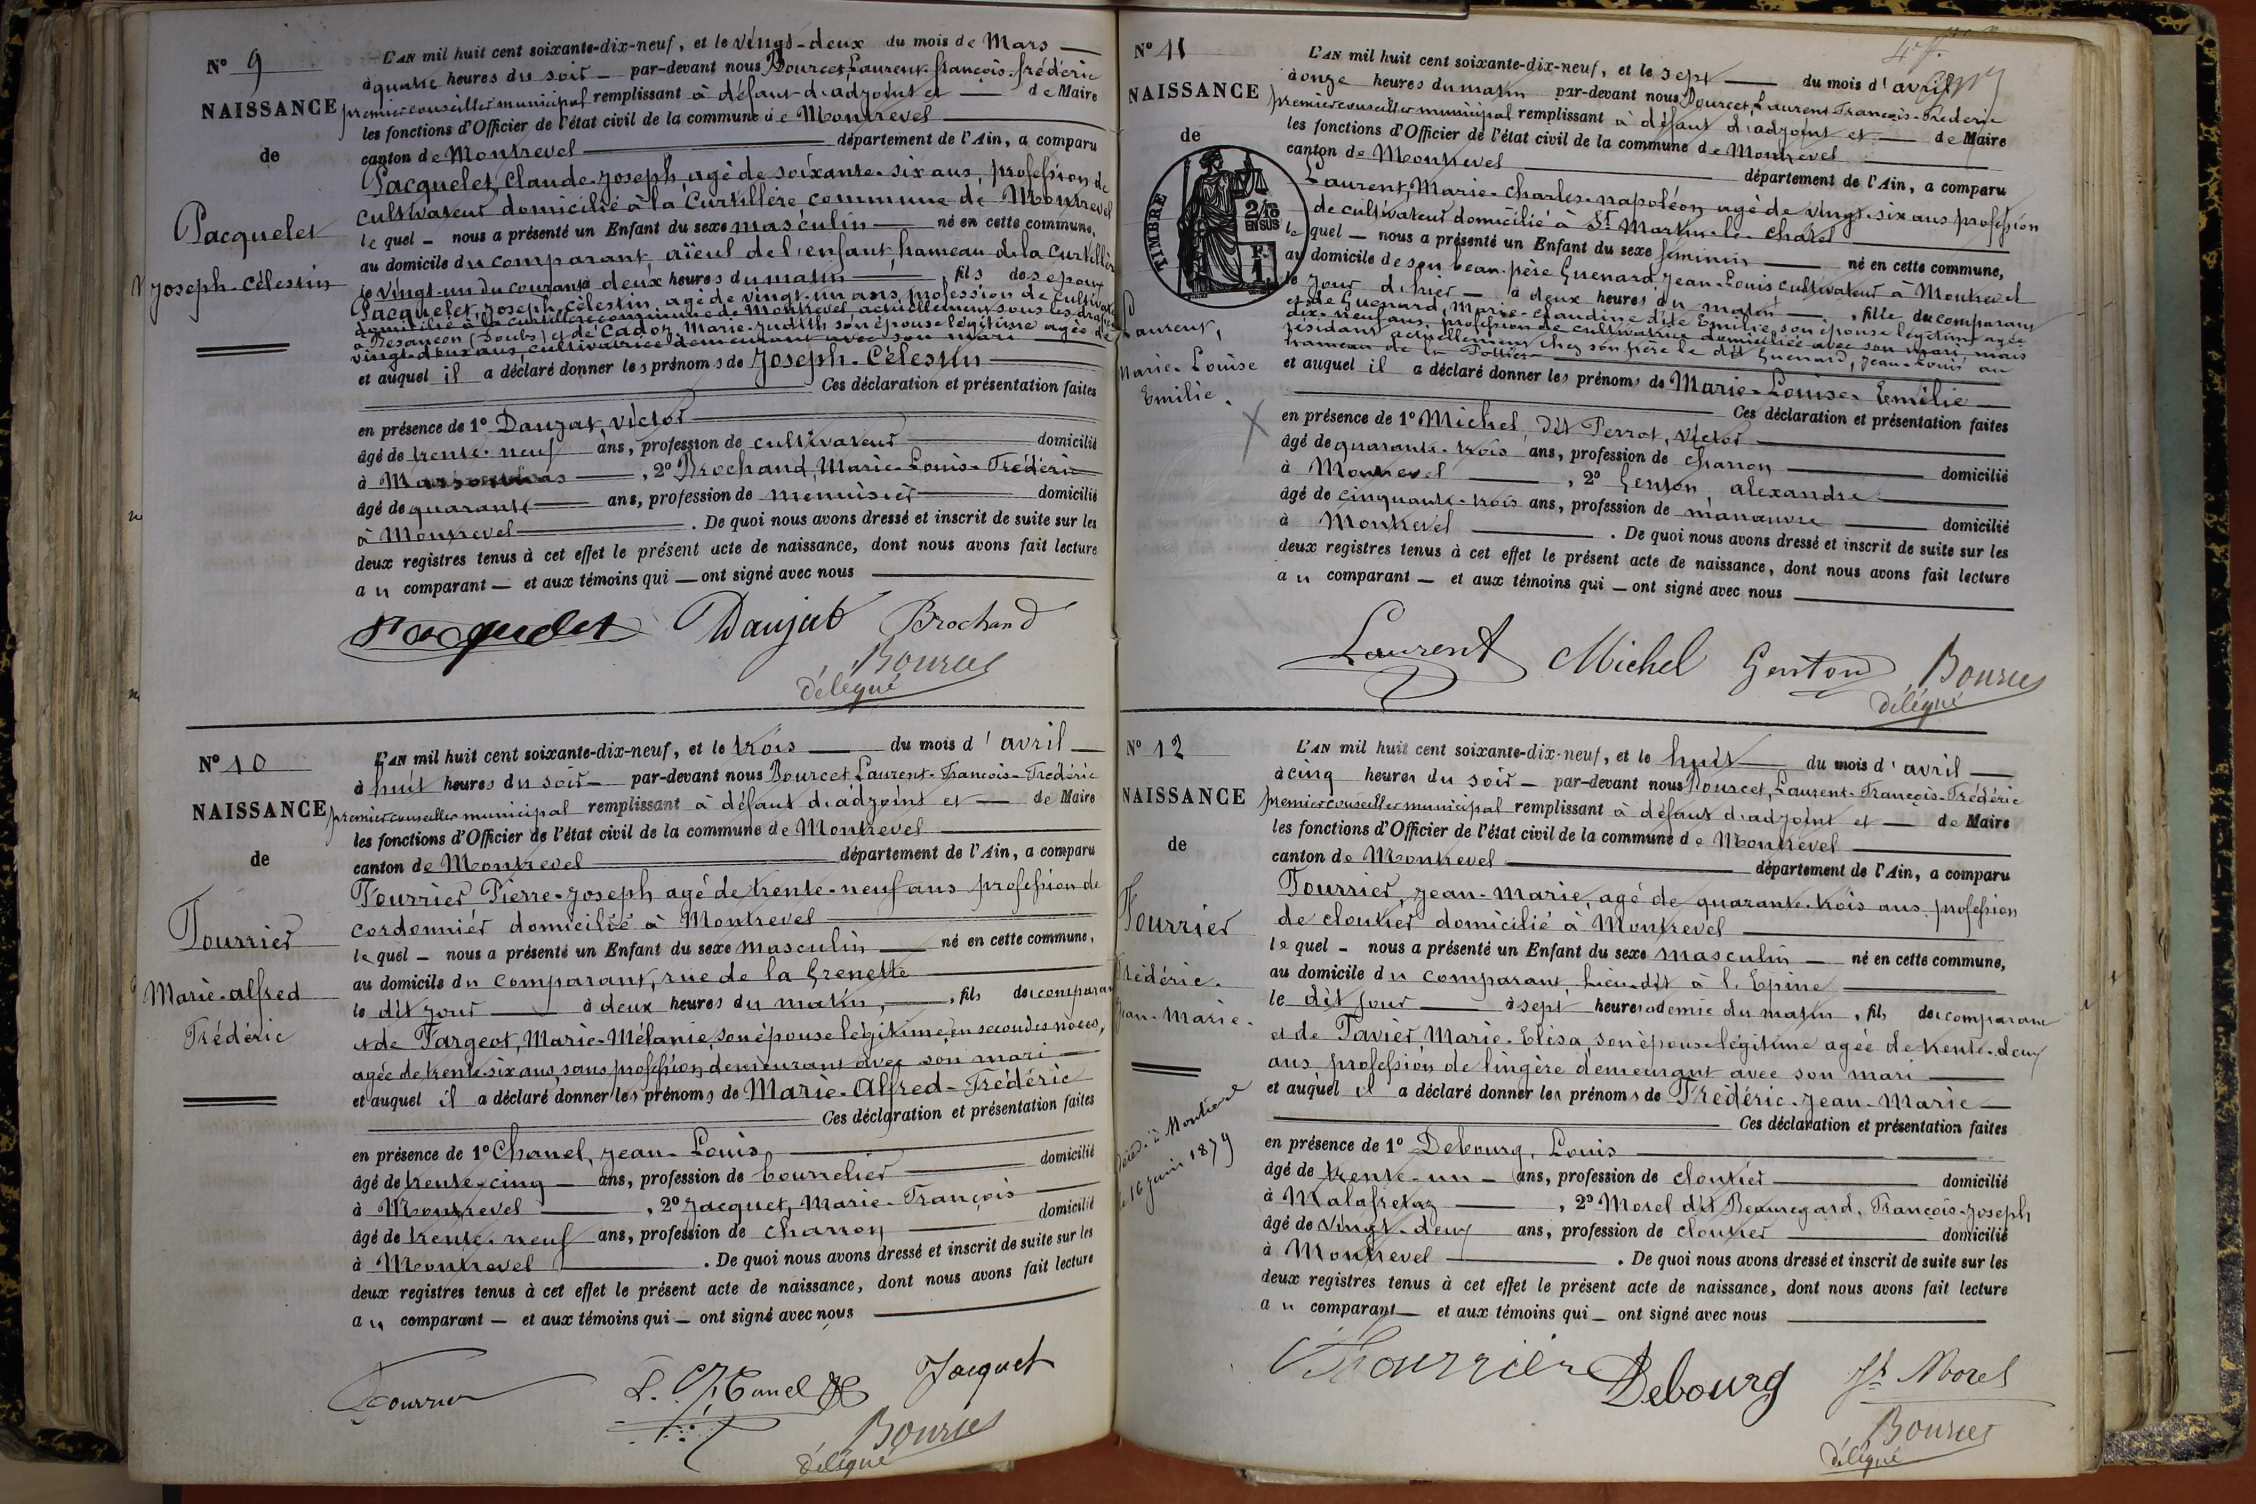 N° 9
NAISSANCE
de
Pacquelet
Joseph-Célestin
L'AN mil huit cent soixante-dix-neuf, et le vingt-deux du mois de Mars
à quatre heures du soir par-devant nous Bourcet, Laurent-françois-frédéric
premier conseiller municipal remplissant à défaut d'adjoint et de Maire
les fonctions d'Officier de l'état civil de la commune de Montrevel
canton de Montrevel département de l'Ain, a comparu
Pacquelet, Claude-Joseph, agé de soixante-six ans, profession de
cultivateur domicilié à la Curtillère commune de Montrevel
le quel nous a présenté un Enfant du sexe masculin né en cette commune,
au domicile du comparant, aïeul de l'enfant, hameau de la Curtillère
le vingt-un du courant à deux heures du matin, fils des époux
Pacquelet, Joseph-Célestin, agé de vingt-un ans, profession de cultivateur
domicilié à la Curtillère commune de Montrevel, actuellement sous les drapeaux
à Besançon (Doubs) et de Cadoz, Marie-Judith, son épouse légitime agée de
vingt-deux ans, cultivatrice demeurant avec son mari
et auquel il a déclaré donner les prénoms de Joseph-Célestin
Ces déclaration et présentation faites
en présence de 1° Daujat, Victor
âgé de trente-neuf ans, profession de cultivateur domicilié
à , 2° Brochand, Marie-Louis-Frédéric
âgé de quarante ans, profession de menuisier domicilié
à Montrevel. De quoi nous avons dressé et inscrit de suite sur les
deux registres tenus à cet effet le présent acte de naissance, dont nous avons fait lecture
au comparant et aux témoins qui ont signé avec nous
Pacquelet Daujat Brochand
Bourcet
délégué
N° 10
NAISSANCE
de
Fourrier
Marie-alfred
Frédéric
L'AN mil huit cent soixante-dix-neuf, et le trois du mois d'avril
à huit heures du soir par-devant nous Bourcet, Laurent-François-Frédéric
premier conseiller municipal remplissant à défaut d'adjoint et de Maire
les fonctions d'Officier de l'état civil de la commune de Montrevel
canton de Montrevel département de l'Ain, a comparu
Fourrier Pierre-Joseph agé de trente-neuf ans profession de
cordonnier domicilié à Montrevel
le quel nous a présenté un Enfant du sexe masculin né en cette commune,
au domicile du comparant, rue de la Grenette
le dit jour à deux heures du matin, fils du comparant
et de Fargeot, Marie-Mélanie, son épouse légitime, en secondes noces,
agée de trente-six ans, sans profession, demeurant avec son mari
et auquel il a déclaré donner les prénoms de Marie-Alfred-Frédéric
Ces déclaration et présentation faites
en présence de 1° Chanel, Jean-Louis
âgé de trente-cinq ans, profession de bourrelier domicilié
à Montrevel, 2° Jacquet, Marie-François
âgé de trente-neuf ans, profession de charron domicilié
à Montrevel. De quoi nous avons dressé et inscrit de suite sur les
deux registres tenus à cet effet le présent acte de naissance, dont nous avons fait lecture
au comparant et aux témoins qui ont signé avec nous
Fourrier L. Chanel Jacquet
Bourcet
délégué
N° 11
NAISSANCE
de
TIMBRE
2/10 EN SUS
F. 1
Laurent,
Marie-Louise
Emilie.
L'AN mil huit cent soixante-dix-neuf, et le sept du mois d'avril
à onze heures du matin par-devant nous Bourcet, Laurent François-Frédéric
premier conseiller municipal remplissant à défaut d'adjoint et de Maire
les fonctions d'Officier de l'état civil de la commune de Montrevel
canton de Montrevel département de l'Ain, a comparu
Laurent, Marie-Charles-napoléon agé de vingt-six ans profession
de cultivateur domicilié à St Martin-le-chatel
le quel nous a présenté un Enfant du sexe féminin né en cette commune,
au domicile de son beau-père Guenard Jean-Louis cultivateur à Montrevel
le jour d'hier à deux heures du matin, fille du comparant
et de Guenard, Marie-claudine dite Emilie son épouse légitime agée
dix-neuf ans, profession de cultivatrice domiciliée avec son mari, mais
résidant actuellement chez son père le dit Guenard, Jean-Louis au
hameau de la
et auquel il a déclaré donner les prénoms de Marie-Louise-Emélie
Ces déclaration et présentation faites
en présence de 1° Michel, dit Perrot, Victor
âgé de quarante-trois ans, profession de charron domicilié
à Montrevel, 2° Genton, alexandre
âgé de cinquante-trois ans, profession de manœuvre domicilié
à Montrevel. De quoi nous avons dressé et inscrit de suite sur les
deux registres tenus à cet effet le présent acte de naissance, dont nous avons fait lecture
au comparant et aux témoins qui ont signé avec nous
Laurent Michel Genton Bourcet
délégué
N° 12
NAISSANCE
de
Fourrier
Frédéric-
Jean-Marie-
Décédé à Montrevel
le 16 juin 1879
L'AN mil huit cent soixante-dix-neuf, et le huit du mois d'avril
à cinq heures du soir par-devant nous Bourcet, Laurent-François-Frédéric
premier conseiller municipal remplissant à défaut d'adjoint et de Maire
les fonctions d'Officier de l'état civil de la commune de Montrevel
canton de Montrevel département de l'Ain, a comparu
Fourrier, Jean-Marie, agé de quarante-trois ans, profession
de cloutier domicilié à Montrevel
le quel nous a présenté un Enfant du sexe masculin né en cette commune,
au domicile du comparant, lieu-dit à l'Epine
le dit jour à sept heures et demie du matin, fils du comparant
et de Favier Marie-Elisa, son épouse légitime agée de trente-deux
ans profession de lingère demeurant avec son mari
et auquel il a déclaré donner les prénoms de Frédéric-Jean-Marie
Ces déclaration et présentation faites
en présence de 1° Debourg, Louis
âgé de trente-un ans, profession de cloutier domicilié
à Malafretaz, 2° Morel dit Beauregard, François-Joseph
âgé de vingt-deux ans, profession de cloutier domicilié
à Montrevel. De quoi nous avons dressé et inscrit de suite sur les
deux registres tenus à cet effet le présent acte de naissance, dont nous avons fait lecture
au comparant et aux témoins qui ont signé avec nous
Fourrier Debourg Morel
Bourcet
délégué